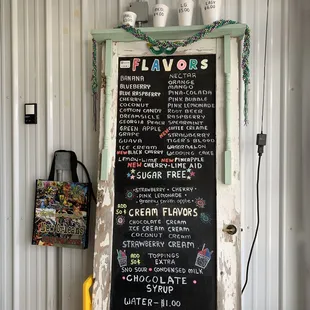 FLAVORS
BANANA NECTAR
BLUEBERRY ORANGE
BLUE RASPBERRY MANGO
CHERRY PINA-COLADA
COCONUT PINK BUBBLE
COTTON CANDY PINK LEMONADE
DREAMSICLE RASPBERRY
GEORGIA PEACH SPEARMINT
GREEN APPLE COFFEE CREME
GRAPE ROOT BEER
GUAVA STRAWBERRY
ICE CREAM TIGER'S BLOOD
NEW BLACK CHERRY WATERMELON
WEDDING CAKE
LEMON-LIME NEW PINEAPPLE
NEW CHERRY-LIME AID
SUGAR FREE
STRAWBERRY - CHERRY
PINK LEMONADE
GRANNY SMITH APPLE
ADD 50¢
CREAM FLAVORS
CHOCOLATE CREAM
ICE CREAM CREAM
COCONUT CREAM
STRAWBERRY CREAM
ADD 50¢
TOPPINGS
EXTRA
SNO SOUR • CONDENSED MILK
•CHOCOLATE
SYRUP
WATER-$1.00